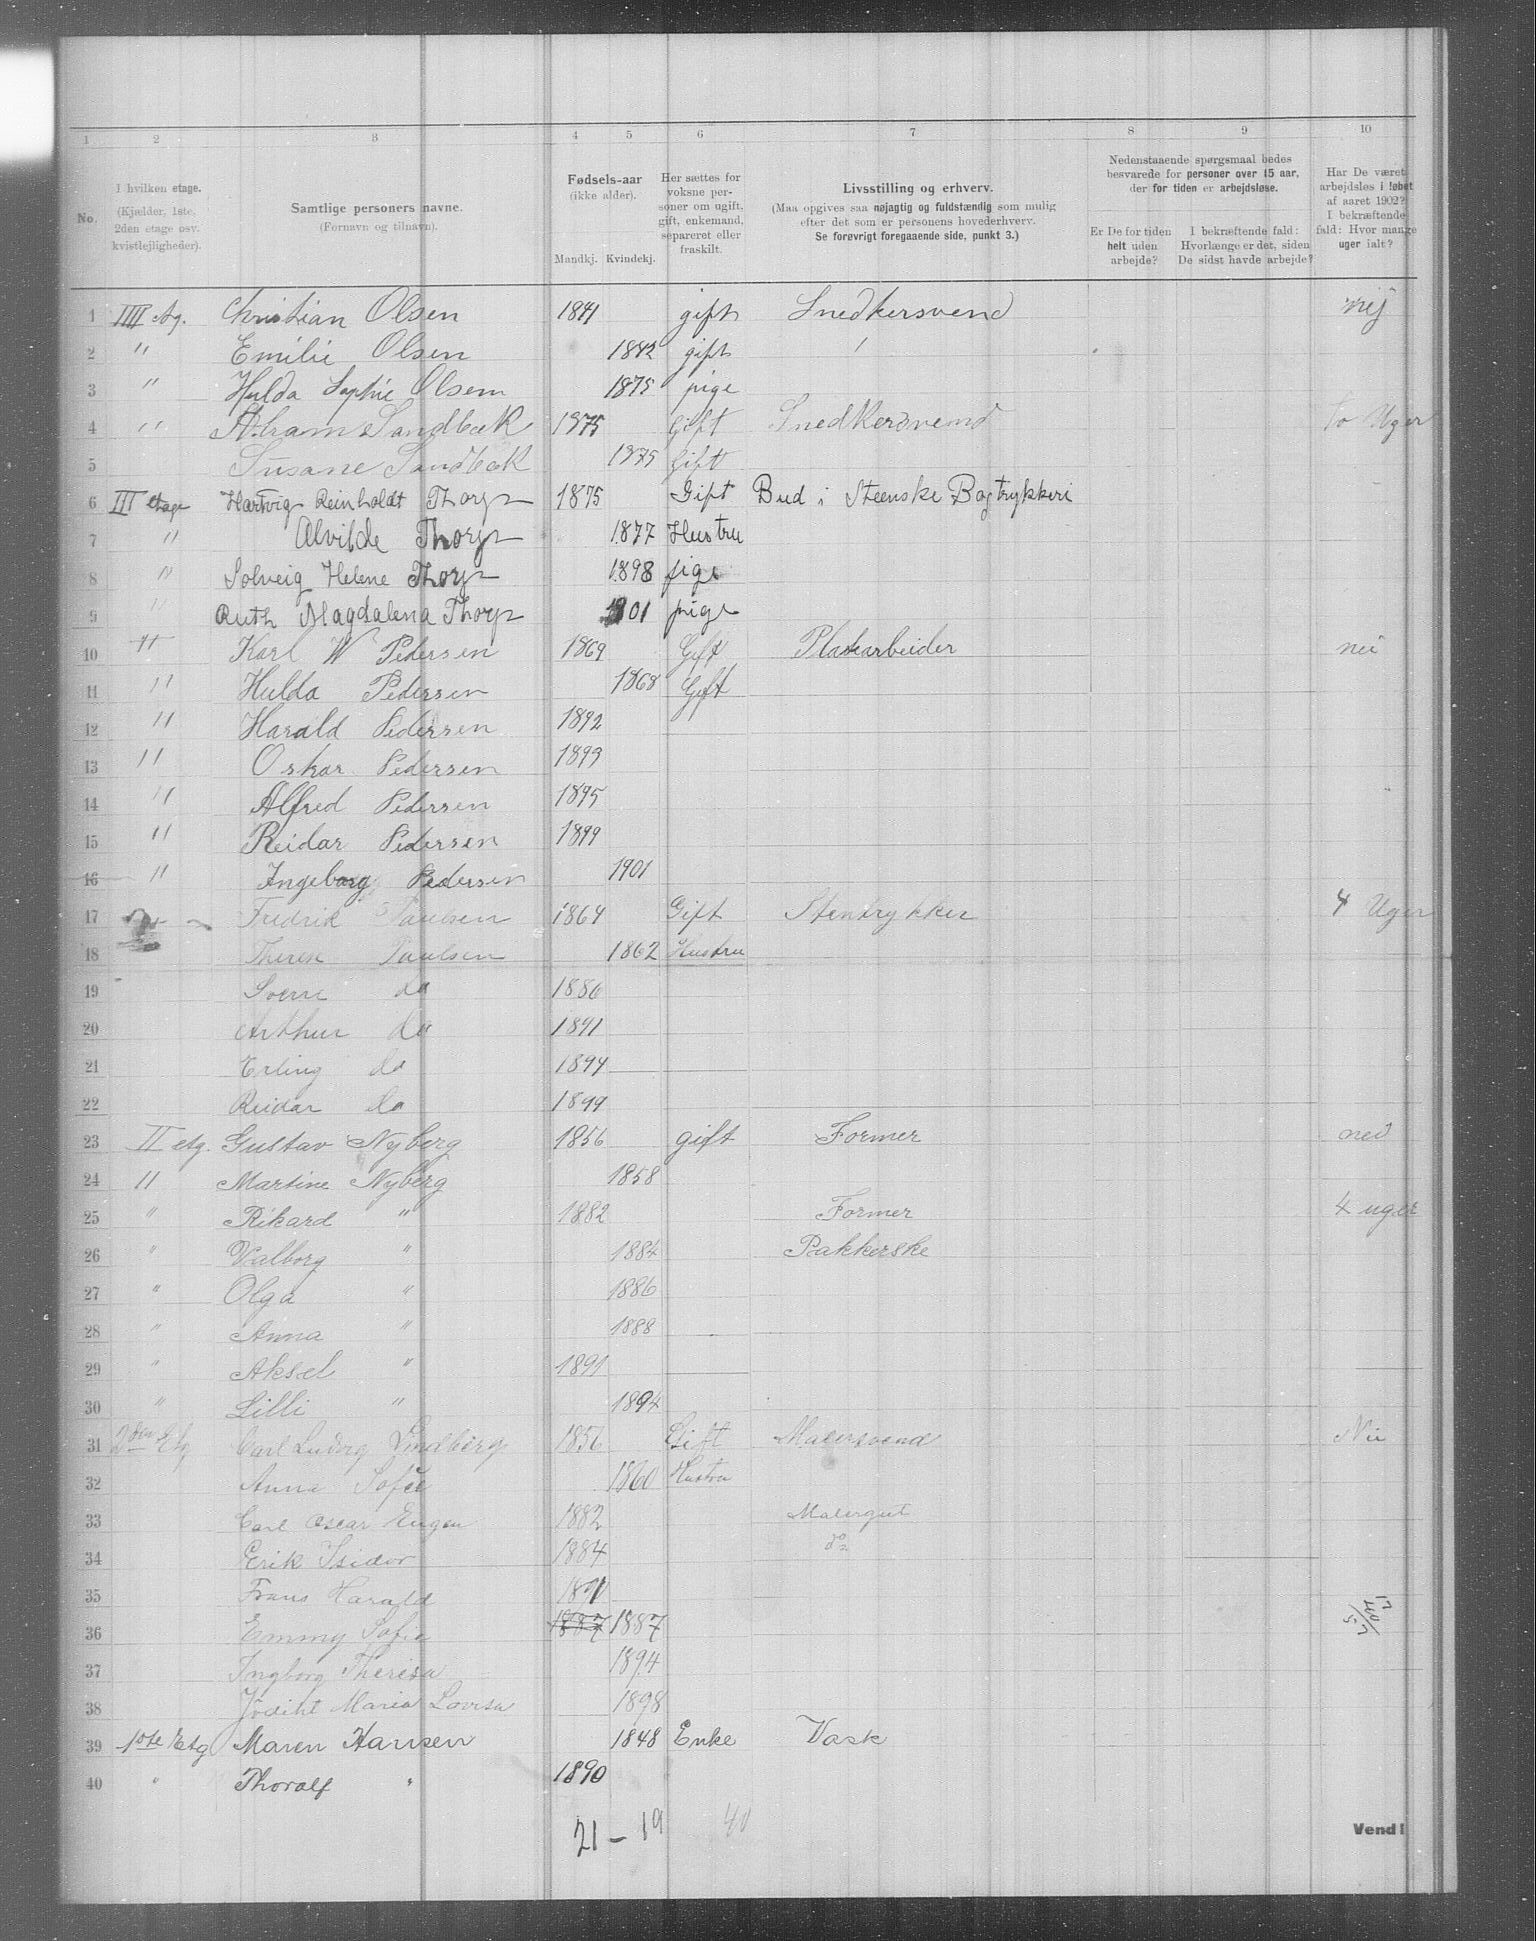 1 2 3 4 5 6 7 8 9 10
No.
I hvilken etage.
(Kjælder, 1ste,
2den etage osv.
kvistlejligheder).
Samtlige personers navne.
(Fornavn og tilnavn).
Fødsels-aar
(ikke alder).
Mandkj. Kvindekj.
Her sættes for
voksne per-
soner om ugift,
gift, enkemand,
separeret eller
fraskilt.
Livsstilling og erhverv.
(Maa opgives saa nøjagtig og fuldstændig som mulig
efter det som er personens hovederhverv.
Se forøvrigt foregaaende side, punkt 3.)
Nedenstaaende spørgsmaal bedes
besvarede for personer over 15 aar,
der for tiden er arbejdsløse.
Er De for tiden
helt uden
arbejde?
I bekræftende fald:
Hvorlænge er det, siden
De sidst havde arbejde?
Har De været
arbejdsløs i løbet
af aaret 1902?
I bekræftende
fald: Hvor mange
uger ialt?
1 IIII Etg. Christian Olsen 1841 gift Snedkersvend nej
2 " Emilie Olsen 1842 gift
3 " Hulda Sophie Olsen 1875 pige
4 " Abram Sandbæk 1875 Gift Snedkersvend to Uger
5 Susane Sandbæk 1875 Gift
6 III etage Hartvig Reinholdt Thorp 1875 Gift Bud i Steenske Bogtrykkeri
7 " Alvilde Thorp 1877 Hustru
8 " Solveig Helene Thorp 1898 pige
9 " Ruth Magdalena Thorp 1901 pige
10 " Karl W Pedersen 1869 Gift Pladsarbeider nei
11 " Hulda Pedersen 1868 Gift
12 " Harald Pedersen 1892
13 " Oskar Pedersen 1893
14 " Alfred Pedersen 1895
15 " Reidar Pedersen 1899
16 " Ingeborg Pedersen 1901
17 Fredrik Paulsen 1864 Gift Stentrykker 4 Uger
18 Therese Paulsen 1862 Hustru
19 Sverre do 1886
20 Arthur do 1891
21 Erling do 1894
22 Reidar do 1899
23 II etg. Gustav Nyberg 1856 gift Former nei
24 " Martine Nyberg 1858
25 " Rikard " 1882 Former 4 uger
26 " Valborg " 1884 Pakkerske
27 " Olga " 1886
28 " Anna " 1888
29 " Aksel " 1891
30 " Lilli " 1894
31 2den Etg Carl Ludvig Lindberg 1856 Gift Malersvend Nei
32 Anna Sofie 1860 Hustru
33 Carl Oscar Eugen 1882 Malergut
34 Erik Isidor 1884 do
35 Frans Harald 1891
36 Emmy Sofie 1887 1887
37 Ingborg Theresa 1894
38 Maria Lovisa 1898
39 1ste Etg Maren Hansen 1848 Enke Vask
40 " Thoralf " 1890
21 – 19 40
Vend!